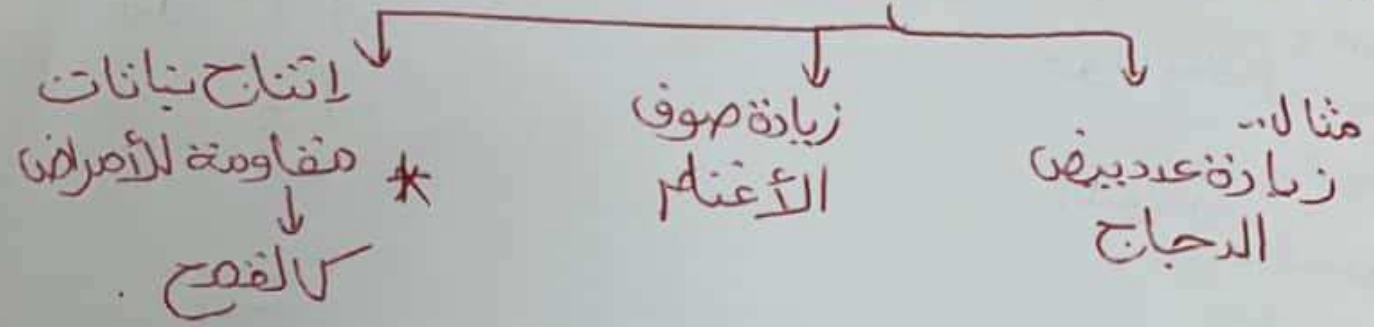 مثال..
زيادة عدد بيض
الدجاج
زيادة صوف
الأغنام
إنتاج نباتات
* مقاومة للأمراض
كالقمح.